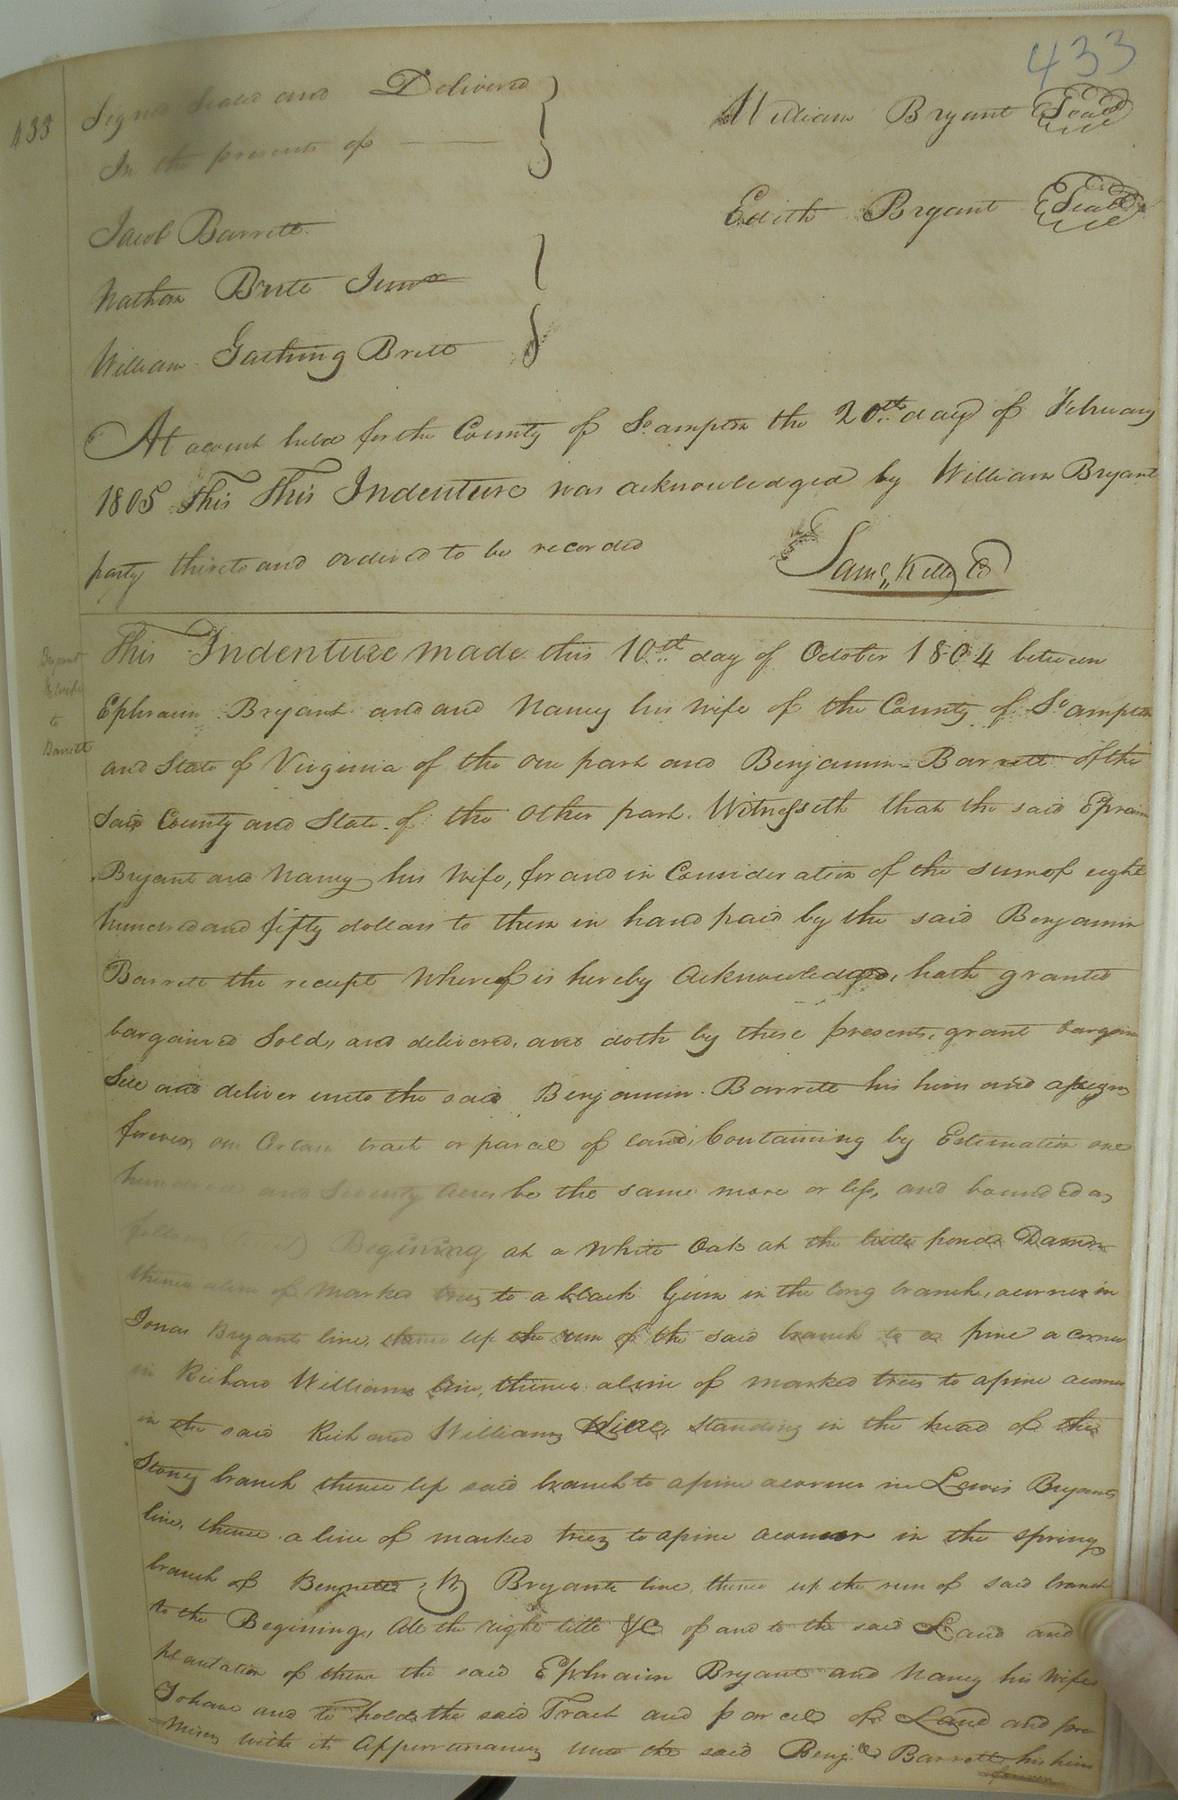 433
433
Signed Sealed and Delivered
In the presents of
William Bryant Seal
Edith Bryant Seal
Jacob Barrett
Nathan Brite Junr
William Gathing Britt
At a court held for the County of So.ampton the 20th day of February
1805 This This Indenture was acknowledged by William Bryant
party thereto and ordered to be recorded
Saml. Kello C
Bryant
& wife
to
Barrett
This Indenture made this 10th day of October 1804 between
Ephraim Bryant and and Nancy his wife of the County of So.ampton
and State of Virginia of the one part and Benjamin Barrett of the
said County and State of the Other part. Witnesseth that the said Ephraim
Bryant and Nancy his Wife, for and in Consideration of the sum of eight
hundred and fifty dollars to them in hand paid by the said Benjamin
Barrett the receipt Whereof is hereby Acknowledged, hath granted
bargained Sold, and delivered, and doth by these presents, grant bargain
Sell and deliver unto the said Benjamin Barrett his heirs and assigns
forever, one Certain tract or parcel of land, Containing by Estimation one
hundred and Seventy Acres be the same more or less, and bounded as
follows Begining at a White Oak at the little pond Damm
thence a line of Marked trees to a black Gum in the long branch, a corner in
Jonas Bryants line, thence up the run of the said branch to a pine a corner
in Richard Williams line, thence a line of marked trees to a pine a corner
in the said Richard Williams line, standing in the head of the
Stoney branch thence up said branch to a pine a corner in Lewis Bryants
line, thence a line of marked trees to a pine a corner in the spring
branch of Bryants line, thence up the run of said branch
to the Begining, All the right title &C of and to the said Land and
plantation of them the said Ephraim Bryant and Nancy his Wife
To have and to hold the said Tract and parcel of Land and pre
mises with its Appurtenances unto the said Benja. Barrett his heirs
forever